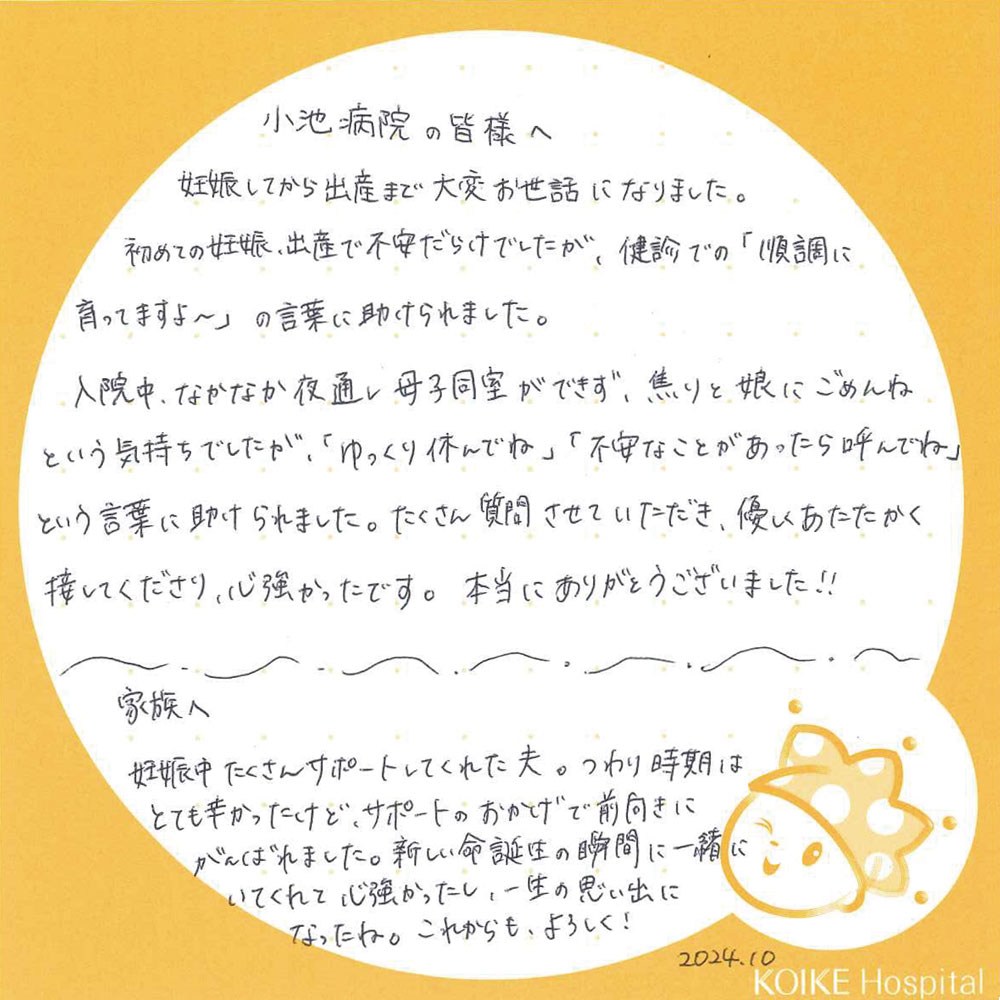 小池病院の皆様へ
妊娠してから出産まで大変お世話になりました。
初めての妊娠、出産で不安だらけでしたが、健診での「順調に
育ってますよ〜」の言葉に助けられました。
入院中、なかなか夜通し母子同室ができず、焦りと娘にごめんね
という気持ちでしたが、「ゆっくり休んでね」「不安なことがあったら呼んでね」
という言葉に助けられました。たくさん質問させていただき、優しくあたたかく
接してくださり、心強かったです。本当にありがとうございました!!
家族へ
妊娠中たくさんサポートしてくれた夫。つわり時期は
とても辛かったけど、サポートのおかげで前向きに
がんばれました。新しい命誕生の瞬間に一緒に
いてくれて心強かったし、一生の思い出に
なったね。これからも、よろしく!
2024.10
KOIKE Hospital